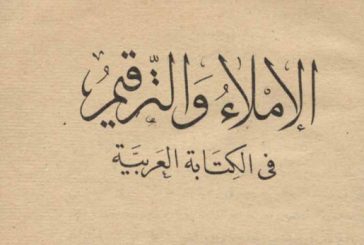 الإِمْلاءُ وَالتَّرقيمُ
فى الكِتَابة العَربيَّة